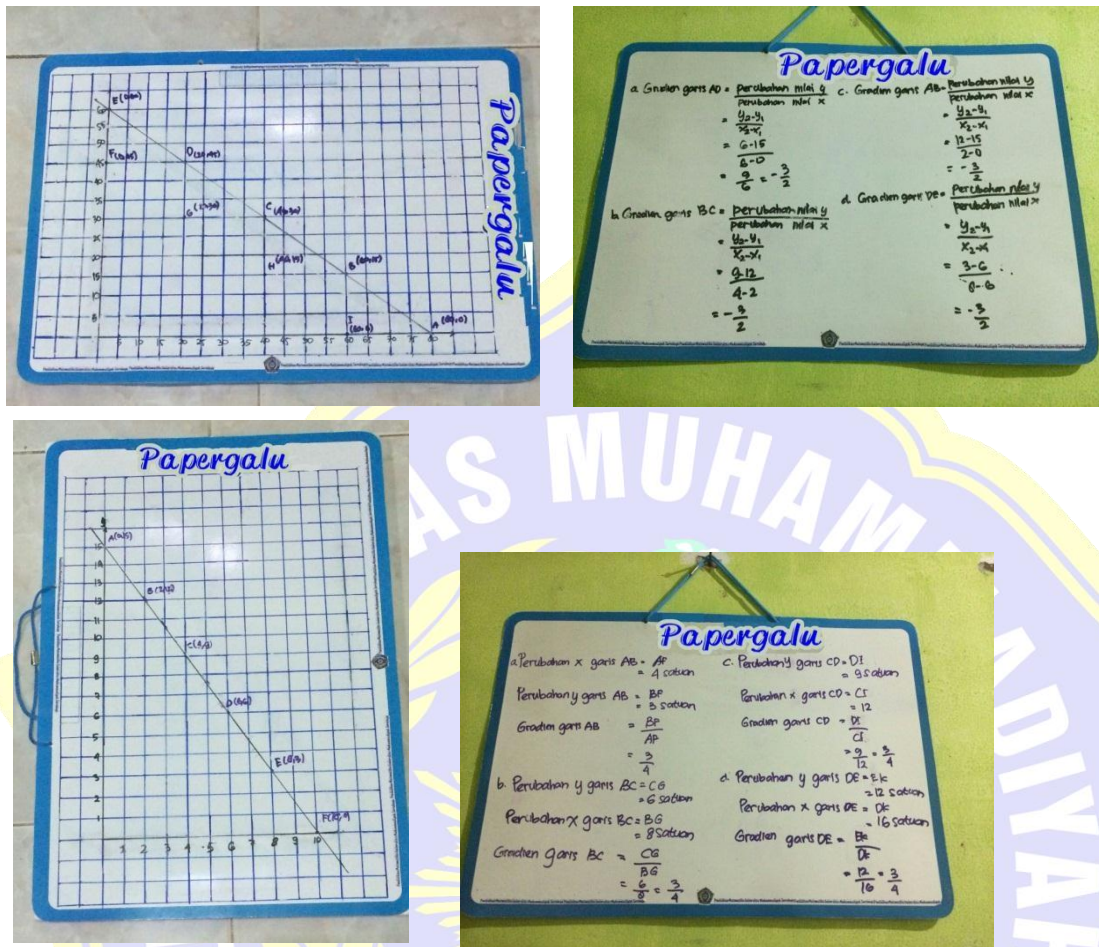 Papergalu
E (0,60)
60
55
D (20,45)
45
40
C (40,30)
35
30
B (60,15)
15
10
I
(60,0)
A (80,0)
5
5 10 15 20 25 30 35 40 45 50 55 60
Papergalu
a Gradien garis AD = perubahan nilai y
perubahan nilai x
= y₂-y₁
x₂-x₁
= 6-15
6-0
= 9
6
= -3
2
b. Gradien garis BC = perubahan nilai y
perubahan nilai x
= y₂-y₁
x₂-x₁
= 9-12
4-2
= -3
2
c. Gradien garis AB = Perubahan nilai y
perubahan nilai x
= y₂-y₁
x₂-x₁
= 12-15
2-0
= -3
2
d. Gradien garis DE = Perubahan nilai y
perubahan nilai x
= y₂-y₁
= 3-6
= -3
2
Papergalu
A(0,15)
15
14
13
B(2,12)
12
11
10
C(4,9)
9
8
7
D(6,6)
6
5
4
E(8,3)
3
2
1
1 2 3 4 5 6 7 8 9 10
Papergalu
a. Perubahan x garis AB = AF
= 4 satuan
Perubahan y garis AB = BF
= 3 satuan
Gradien garis AB = BF
AF
= 3
4
b. Perubahan y garis BC = CG
= 6 satuan
Perubahan x garis BC = BG
= 8 satuan
Gradien garis BC = CG
BG
= 6
8
= 3
4
c. Perubahan y garis CD = DI
= 9 satuan
Perubahan x garis CD = CI
= 12
Gradien garis CD = DI
CI
= 9
12
= 3
4
d. Perubahan y garis DE = EK
= 12 satuan
Perubahan x garis DE = DK
= 16 satuan
Gradien garis DE = EK
DK
= 12
16
= 3
4
AS MUHAMMADIYAH